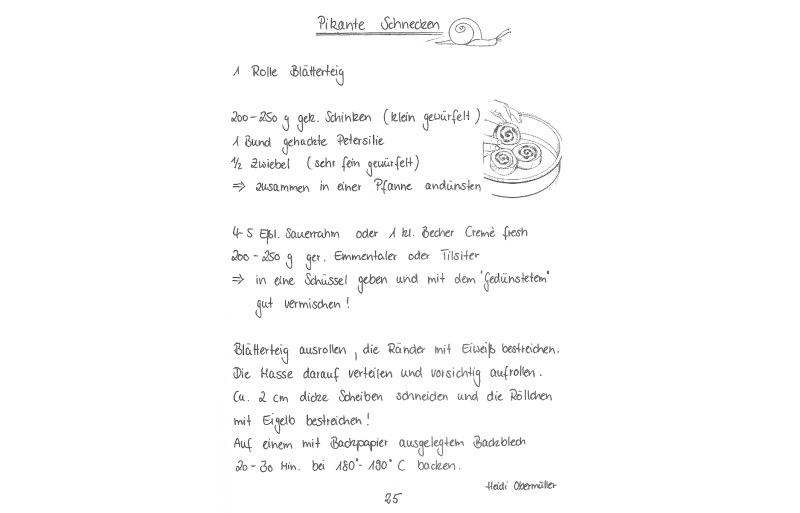 Pikante Schnecken
1 Rolle Blätterteig
200-250 g gek. Schinken (klein gewürfelt)
1 Bund gehackte Petersilie
1/2 Zwiebel (sehr fein gewürfelt)
⇒ zusammen in einer Pfanne andünsten
4-5 Eßl. Sauerrahm oder 1 kl. Becher Cremè fresh
200-250 g ger. Emmentaler oder Tilsiter
⇒ in eine Schüssel geben und mit dem "Gedünstetem"
gut vermischen!
Blätterteig ausrollen, die Ränder mit Eiweiß bestreichen.
Die Masse darauf verteilen und vorsichtig aufrollen.
Ca. 2 cm dicke Scheiben schneiden und die Röllchen
mit Eigelb bestreichen!
Auf einem mit Backpapier ausgelegtem Backblech
20-30 Min. bei 180°-190° C backen.
Heidi Obermüller
25